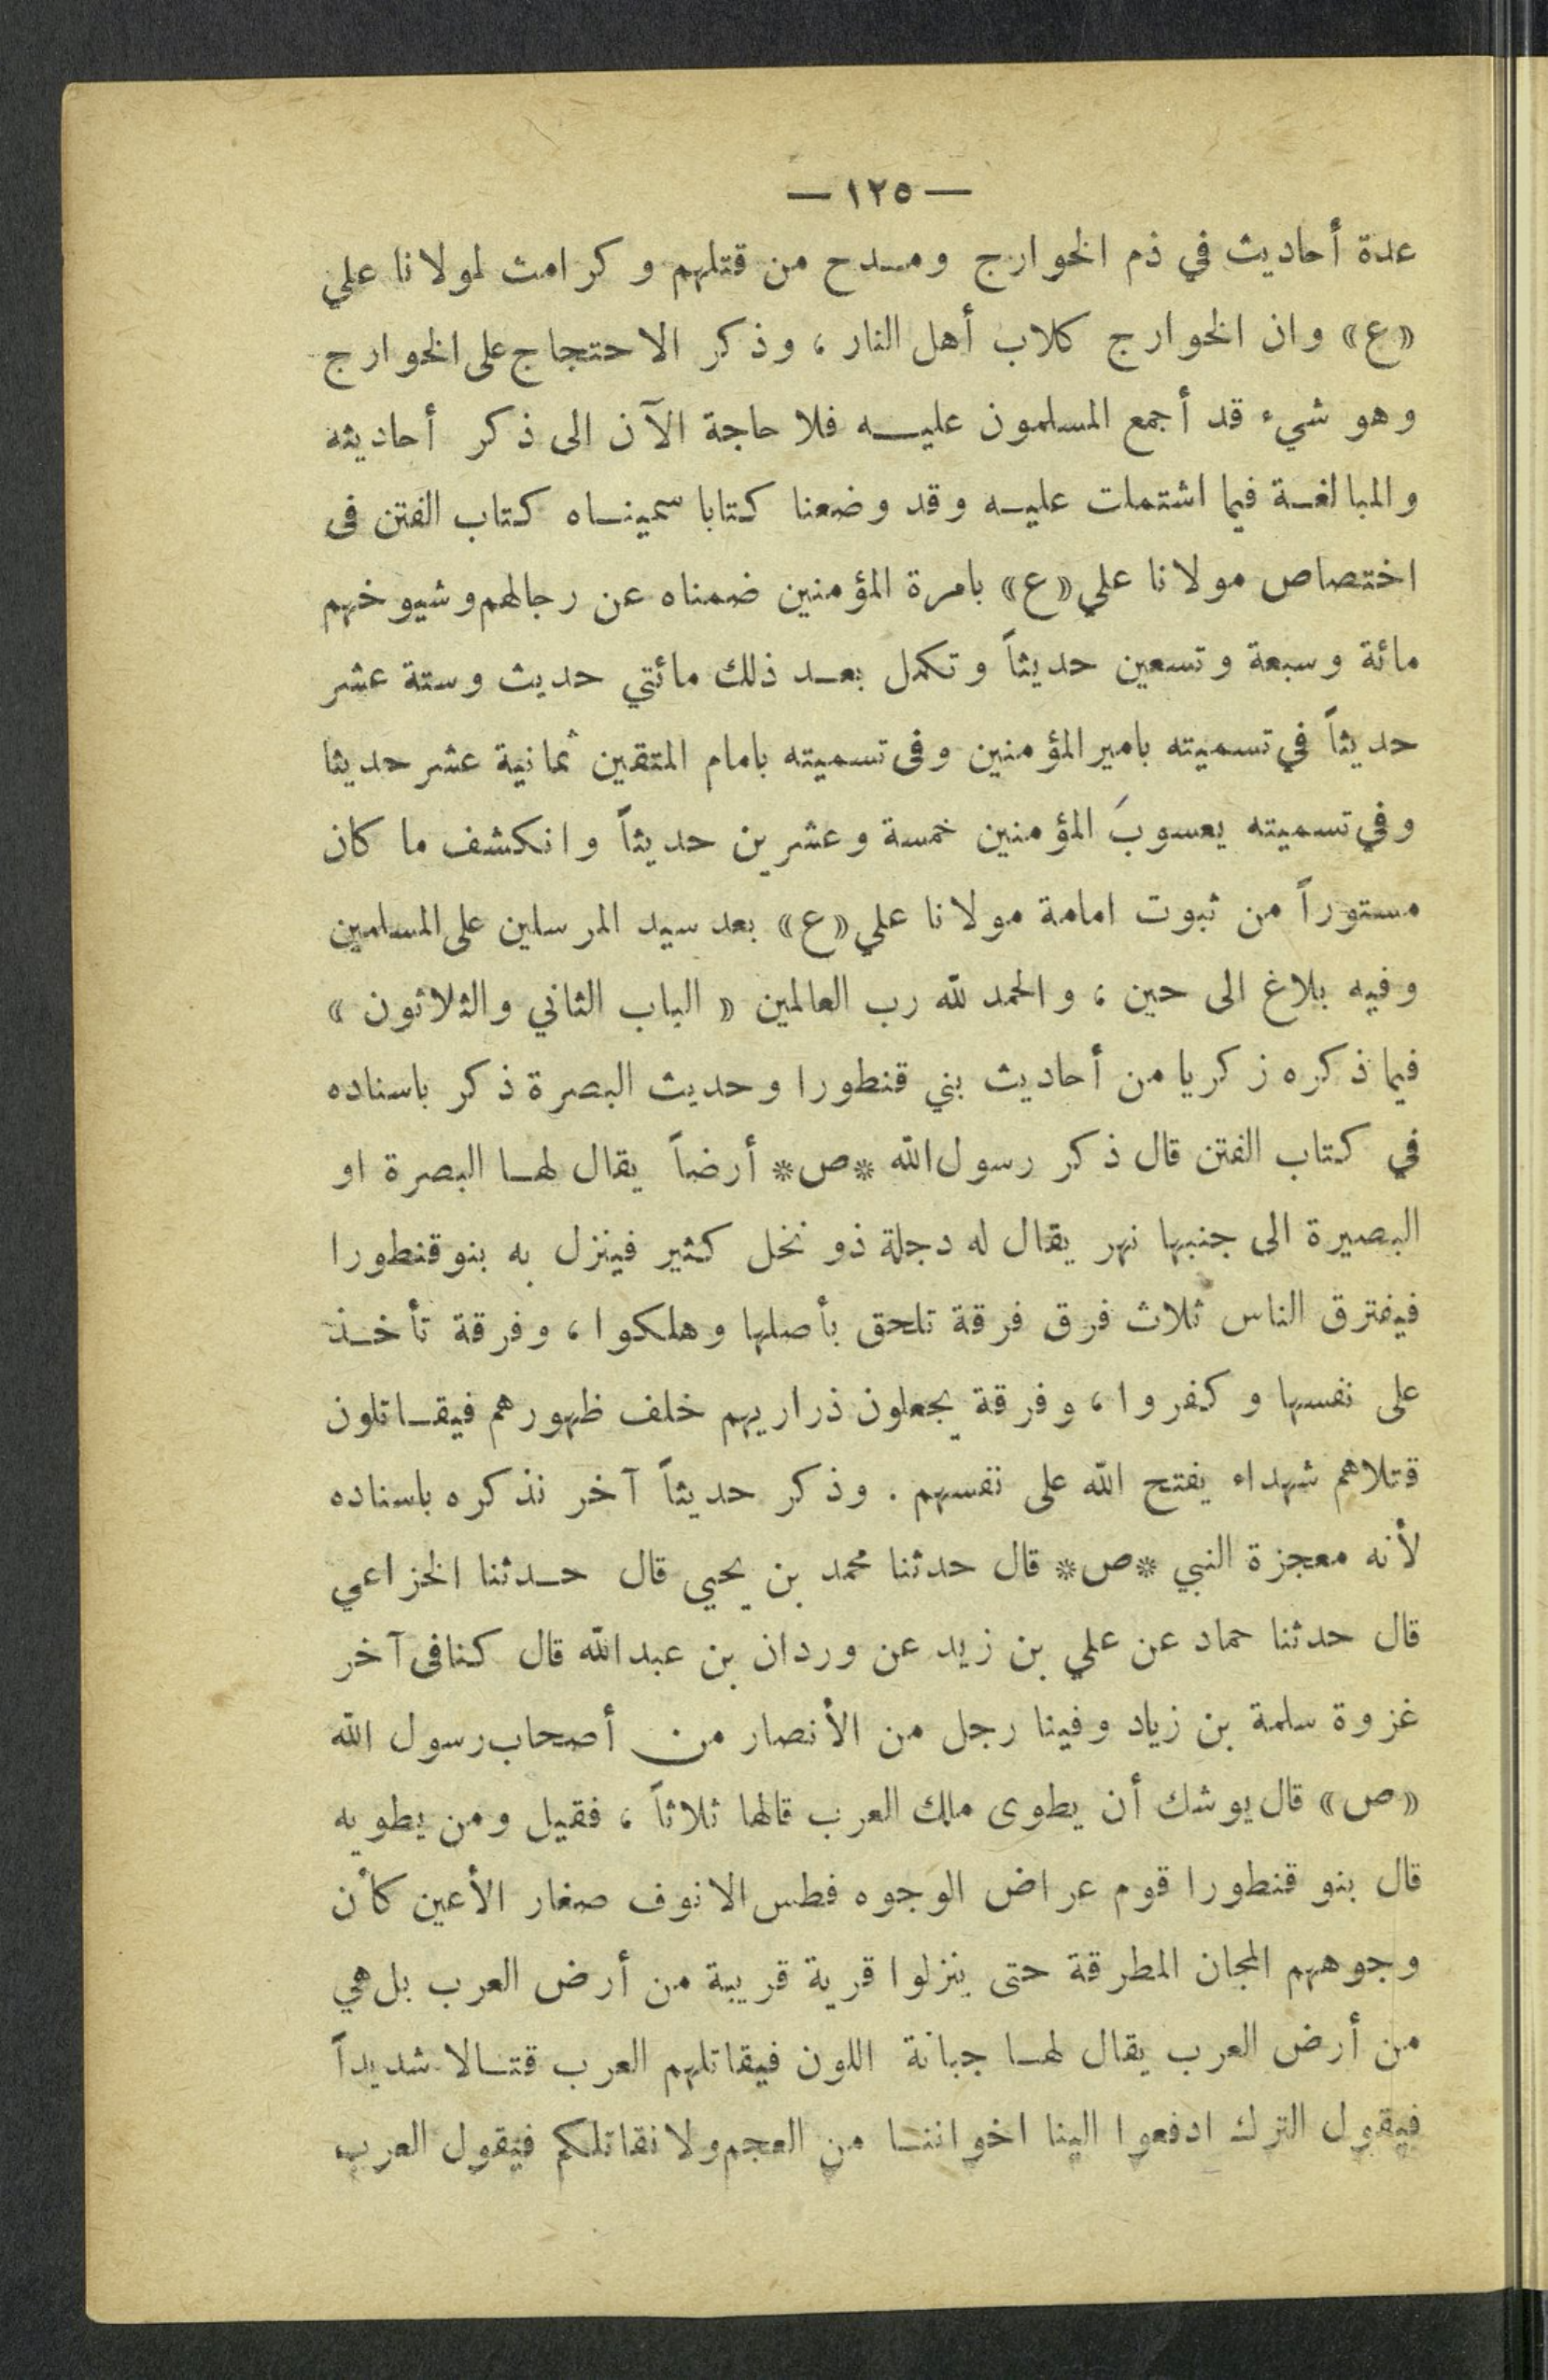 — ١٢٥ —
عدة أحاديث في ذم الخوارج ومدح من قتلهم وكرامت لمولانا علي
«ع» وان الخوارج كلاب أهل النار ، وذكر الاحتجاج على الخوارج
وهو شيء قد أجمع المسلمون عليه فلا حاجة الآن الى ذكر أحاديثه
والمبالغة فيما اشتملت عليه وقد وضعنا كتابا سميناه كتاب الفتن فى
اختصاص مولانا علي «ع» بامرة المؤمنين ضمناه عن رجالهم وشيوخهم
مائة وسبعة وتسعين حديثاً وتكمل بعد ذلك مائتي حديث وستة عشر
حديثاً في تسميته بامير المؤمنين وفى تسميته بامام المتقين ثمانية عشر حديثا
وفي تسميته يعسوبَ المؤمنين خمسة وعشرين حديثاً وانكشف ما كان
مستوراً من ثبوت امامة مولانا علي «ع» بعد سيد المرسلين على المسلمين
وفيه بلاغ الى حين ، والحمد لله رب العالمين « الباب الثاني والثلاثون »
فيما ذكره زكريا من أحاديث بني قنطورا وحديث البصرة ذكر باسناده
في كتاب الفتن قال ذكر رسول الله *ص* أرضاً يقال لها البصرة او
البصيرة الى جنبها نهر يقال له دجلة ذو نخل كثير فينزل به بنو قنطورا
فيفترق الناس ثلاث فرق فرقة تلحق بأصلها وهلكوا ، وفرقة تأخذ
على نفسها وكفروا ، وفرقة يجعلون ذراريهم خلف ظهورهم فيقاتلون
قتلاهم شهداء يفتح الله على نفسهم . وذكر حديثاً آخر نذكره باسناده
لأنه معجزة النبي *ص* قال حدثنا محمد بن يحيى قال حدثنا الخزاعي
قال حدثنا حماد عن علي بن زيد عن وردان بن عبد الله قال كنا فى آخر
غزوة سلمة بن زياد وفينا رجل من الأنصار من أصحاب رسول الله
«ص» قال يوشك أن يطوى ملك العرب قالها ثلاثاً ، فقيل ومن يطويه
قال بنو قنطورا قوم عراض الوجوه فطس الانوف صغار الأعين كأن
وجوههم المجان المطرقة حتى ينزلوا قرية قريبة من أرض العرب بل هي
من أرض العرب يقال لها جبانة اللون فيقاتلهم العرب قتالا شديداً
فيقول الترك ادفعوا الينا اخواننا من العجم ولا نقاتلكم فيقول العرب